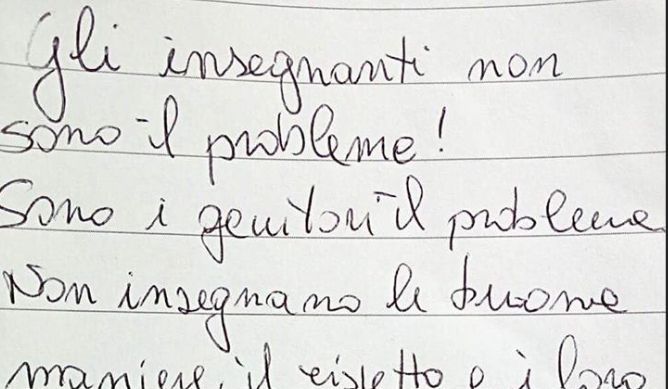 Gli insegnanti non
sono il problema!
Sono i genitori il problema
Non insegnano le buone
maniere, il rispetto e i loro